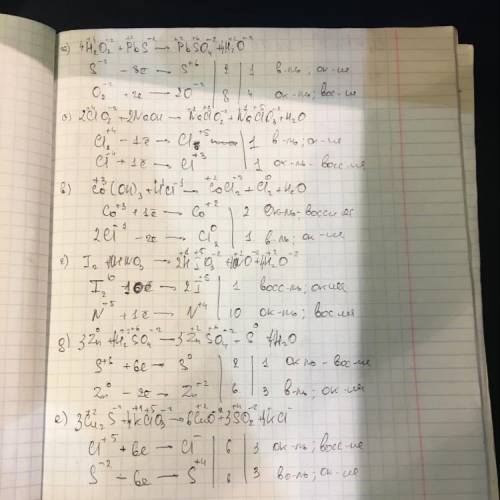 а) 4H₂O₂⁻² + PbS⁻² → PbSO₄⁻² + 4H₂O⁻²
S⁻² − 8ē → S⁺⁶ | 2 | 1 в-ль; ок-ие
O₂⁻² + 2ē → 2O⁻² | 8 | 4 ок-ль; вос-ие
2ClO₂⁻² + 2NaOH → NaClO₂⁻² + NaClO₃⁻² + H₂O
Cl⁺⁴ − 1ē → Cl⁺⁵ | 1 в-ль; ок-ие
Cl⁺⁴ + 1ē → Cl⁺³ | 1 ок-ль - восс-ие
в) Co⁺³(OH)₃ + HCl⁻¹ → Co⁺²Cl₂ + Cl₂⁰ + H₂O
Co⁺³ + 1ē → Co⁺² | 2 ок-ль - восс-ие
2Cl⁻¹ − 2ē → Cl₂⁰ | 1 в-ль; ок-ие
I₂ + HNO₃ → 2HIO₃⁻² + NO⁻² + H₂O⁻²
I₂⁰ 10ē → 2I⁺⁵ | 1 восс-ль; ок-ие
N⁺⁵ + 1ē → N⁺⁴ | 10 ок-ль; вос-ие
3Zn⁰ + 4H₂SO₄⁻² → 3ZnSO₄⁻² + S⁰ + H₂O
S⁺⁶ + 6ē → S⁰ | 2 | 1 ок-ль - вос-ие
Zn⁰ − 2ē → Zn⁺² | 6 | 3 в-ль; ок-ие
е) 3Cu₂S⁻² + 4KClO₃⁻² → 6CuO⁻² + 3SO₂⁻² + 4KCl⁻
Cl⁺⁵ + 6ē → Cl⁻ | 6 | 3 ок-ль; восс-ие
S⁻² − 6ē → S⁺⁴ | 6 | 3 во-ль; ок-ие